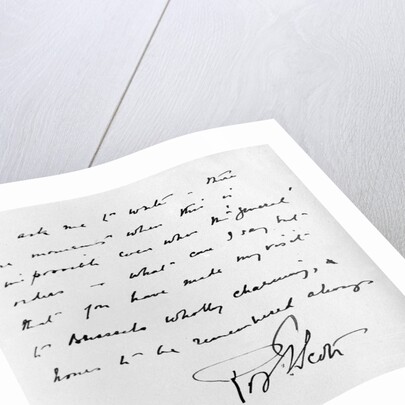 ask me to write - this
moment when this is
impossible even when the 'general'
orders - what can I say but
that you have made my visit
to Brussels wholly charming, &
hopes to be remembered always
R. F. Scott